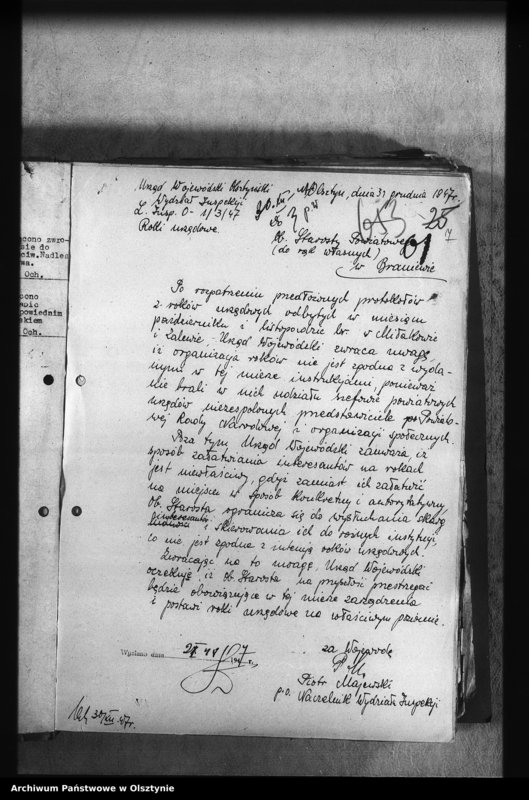 Urząd Wojewódzki Olsztyński
Wydział Inspekcji
L. Insp. O- 1/3/47
Roki urzędowe.
Olsztyn, dnia 31 grudnia 1947r.
653
25
17
Do
Ob. Starosty Powiatowego
01
(do rąk własnych)
w Braniewie
Po rozpatrzeniu przedłożonych protokołów
z roków urzędowych odbytych w miesiącu
październiku i listopadzie br. w Miłakowie
i Zalewie, Urząd Wojewódzki zwraca uwagę,
iż organizacja roków nie jest zgodna z wyda-
nymi w tej mierze instrukcjami, ponieważ
nie brali w nich udziału szefowie powiatowych
urzędów niezespolonych przedstawiciele Powiato-
wej Rady Narodowej i organizacji społecznych.
Poza tym, Urząd Wojewódzki zauważa, iż
sposób załatwiania interesantów na rokach
jest niewłaściwy, gdyż zamiast ich załatwić
na miejscu w sposób konkretny i autorytatywny,
Ob. Starosta ogranicza się do wysłuchania skarg
interesantów i skierowania ich do różnych instytucji
co nie jest zgodne z intencją roków urzędowych.
Zwracając na to uwagę, Urząd Wojewódzki
oczekuje, iż Ob. Starosta na przyszłość przestrzegać
będzie obowiązujące w tej mierze zarządzenia
i postawi roki urzędowe na właściwym poziomie.
Wysłano dnia
za Wojewodę
Piotr Majewski
p.o. Naczelnik Wydziału Inspekcji
30/XII.47r.
cono zwro-
sie do
ciw.Nadleś
wa.
Och.
cono
powiednim
skiem
Och.
Archiwum Państwowe w Olsztynie